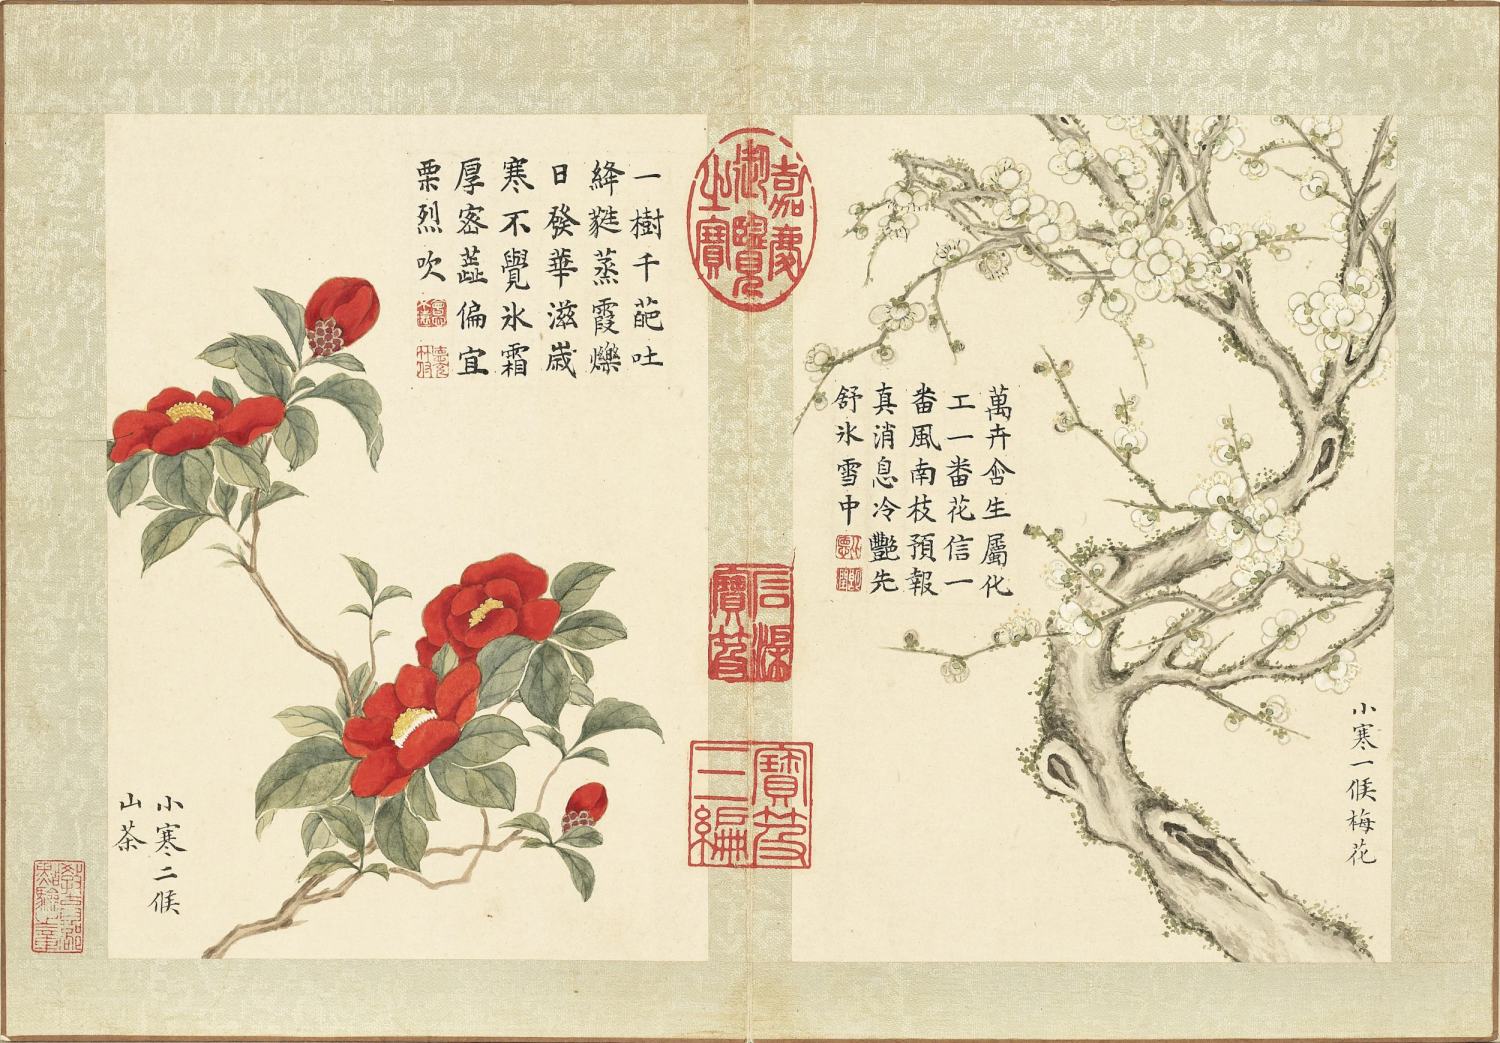 萬卉含生屬化
工一番花信一
番風南枝預報
真消息冷艷先
舒氷雪中
小寒一候梅花
嘉慶
御覽
之寶
石渠
寶芨
寶芨
三編
一樹千葩吐
絳蕤蒸霞爍
日發華滋歲
寒不覺氷霜
厚密蘂偏宜
栗烈吹
小寒二候
山茶